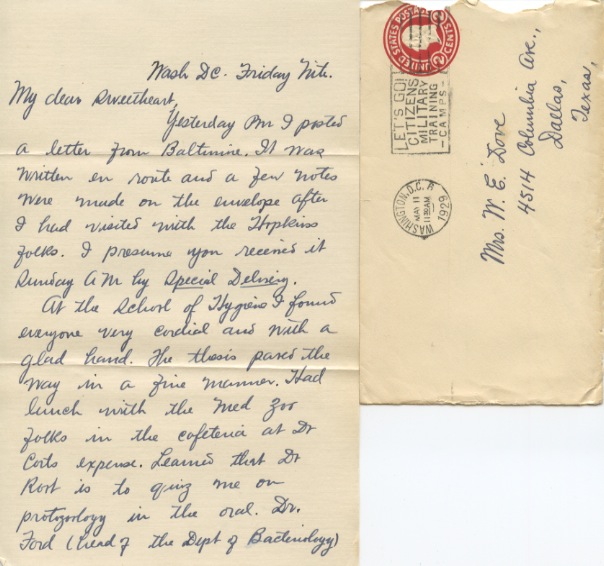 Wash DC. Friday Nite.
My dear Sweetheart,
Yesterday Pm I posted
a letter from Baltimore. It was
written en route and a few notes
were made on the envelope after
I had visited with the Hopkins
folks. I presume you received it
Sunday A M by Special Delivery.
At the School of Hygiene I found
everyone very cordial and with a
glad hand. The thesis paved the
way in a fine manner. Had
lunch with the Med Zoo
folks in the cafeteria at Dr
Corts expense. Learned that Dr
Root is to quiz me on
protozoology in the oral. Dr.
Ford (head of the Dept of Bacteriology)
UNITED STATES POSTAGE
2 CENTS 2
LET'S GO!
CITIZENS
MILITARY
TRAINING
-CAMPS-
WASHINGTON, D.C.
MAY 11
1130AM
1929
Mrs. W. E. Dove
4514 Columbia Ave.,
Dallas,
Texas,